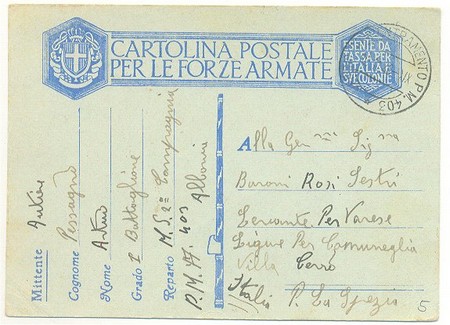 CARTOLINA POSTALE
PER LE FORZE ARMATE
ESENTE DA
TASSA PER
L'ITALIA E
SUE COLONIE
P.M. 403
Mittente
Cognome Pessagno
Nome
Grado I Battaglione
Reparto M. S. 2a Compagnia
P.M. N. 403 Albania
Alla Gen Sig
Baroni Rosi Sestri
Levante Per Varese
Ligure Per Comuneglia
Villa Cerro
P. La Spezia
Italia
5